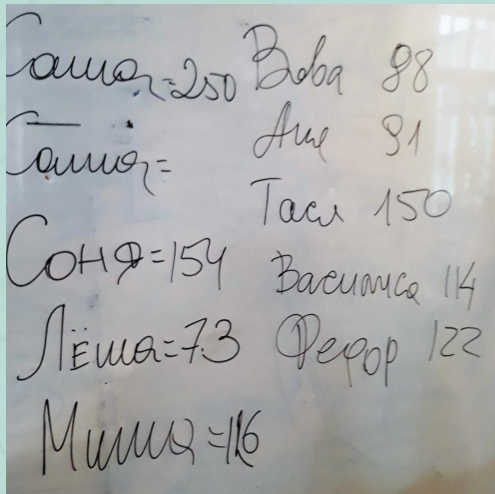 Саша=250
Саша=
Соня=154
Лёша=73
Миша=126
Вова 98
Аня 91
Тася 150
Василиса 114
Федор 122